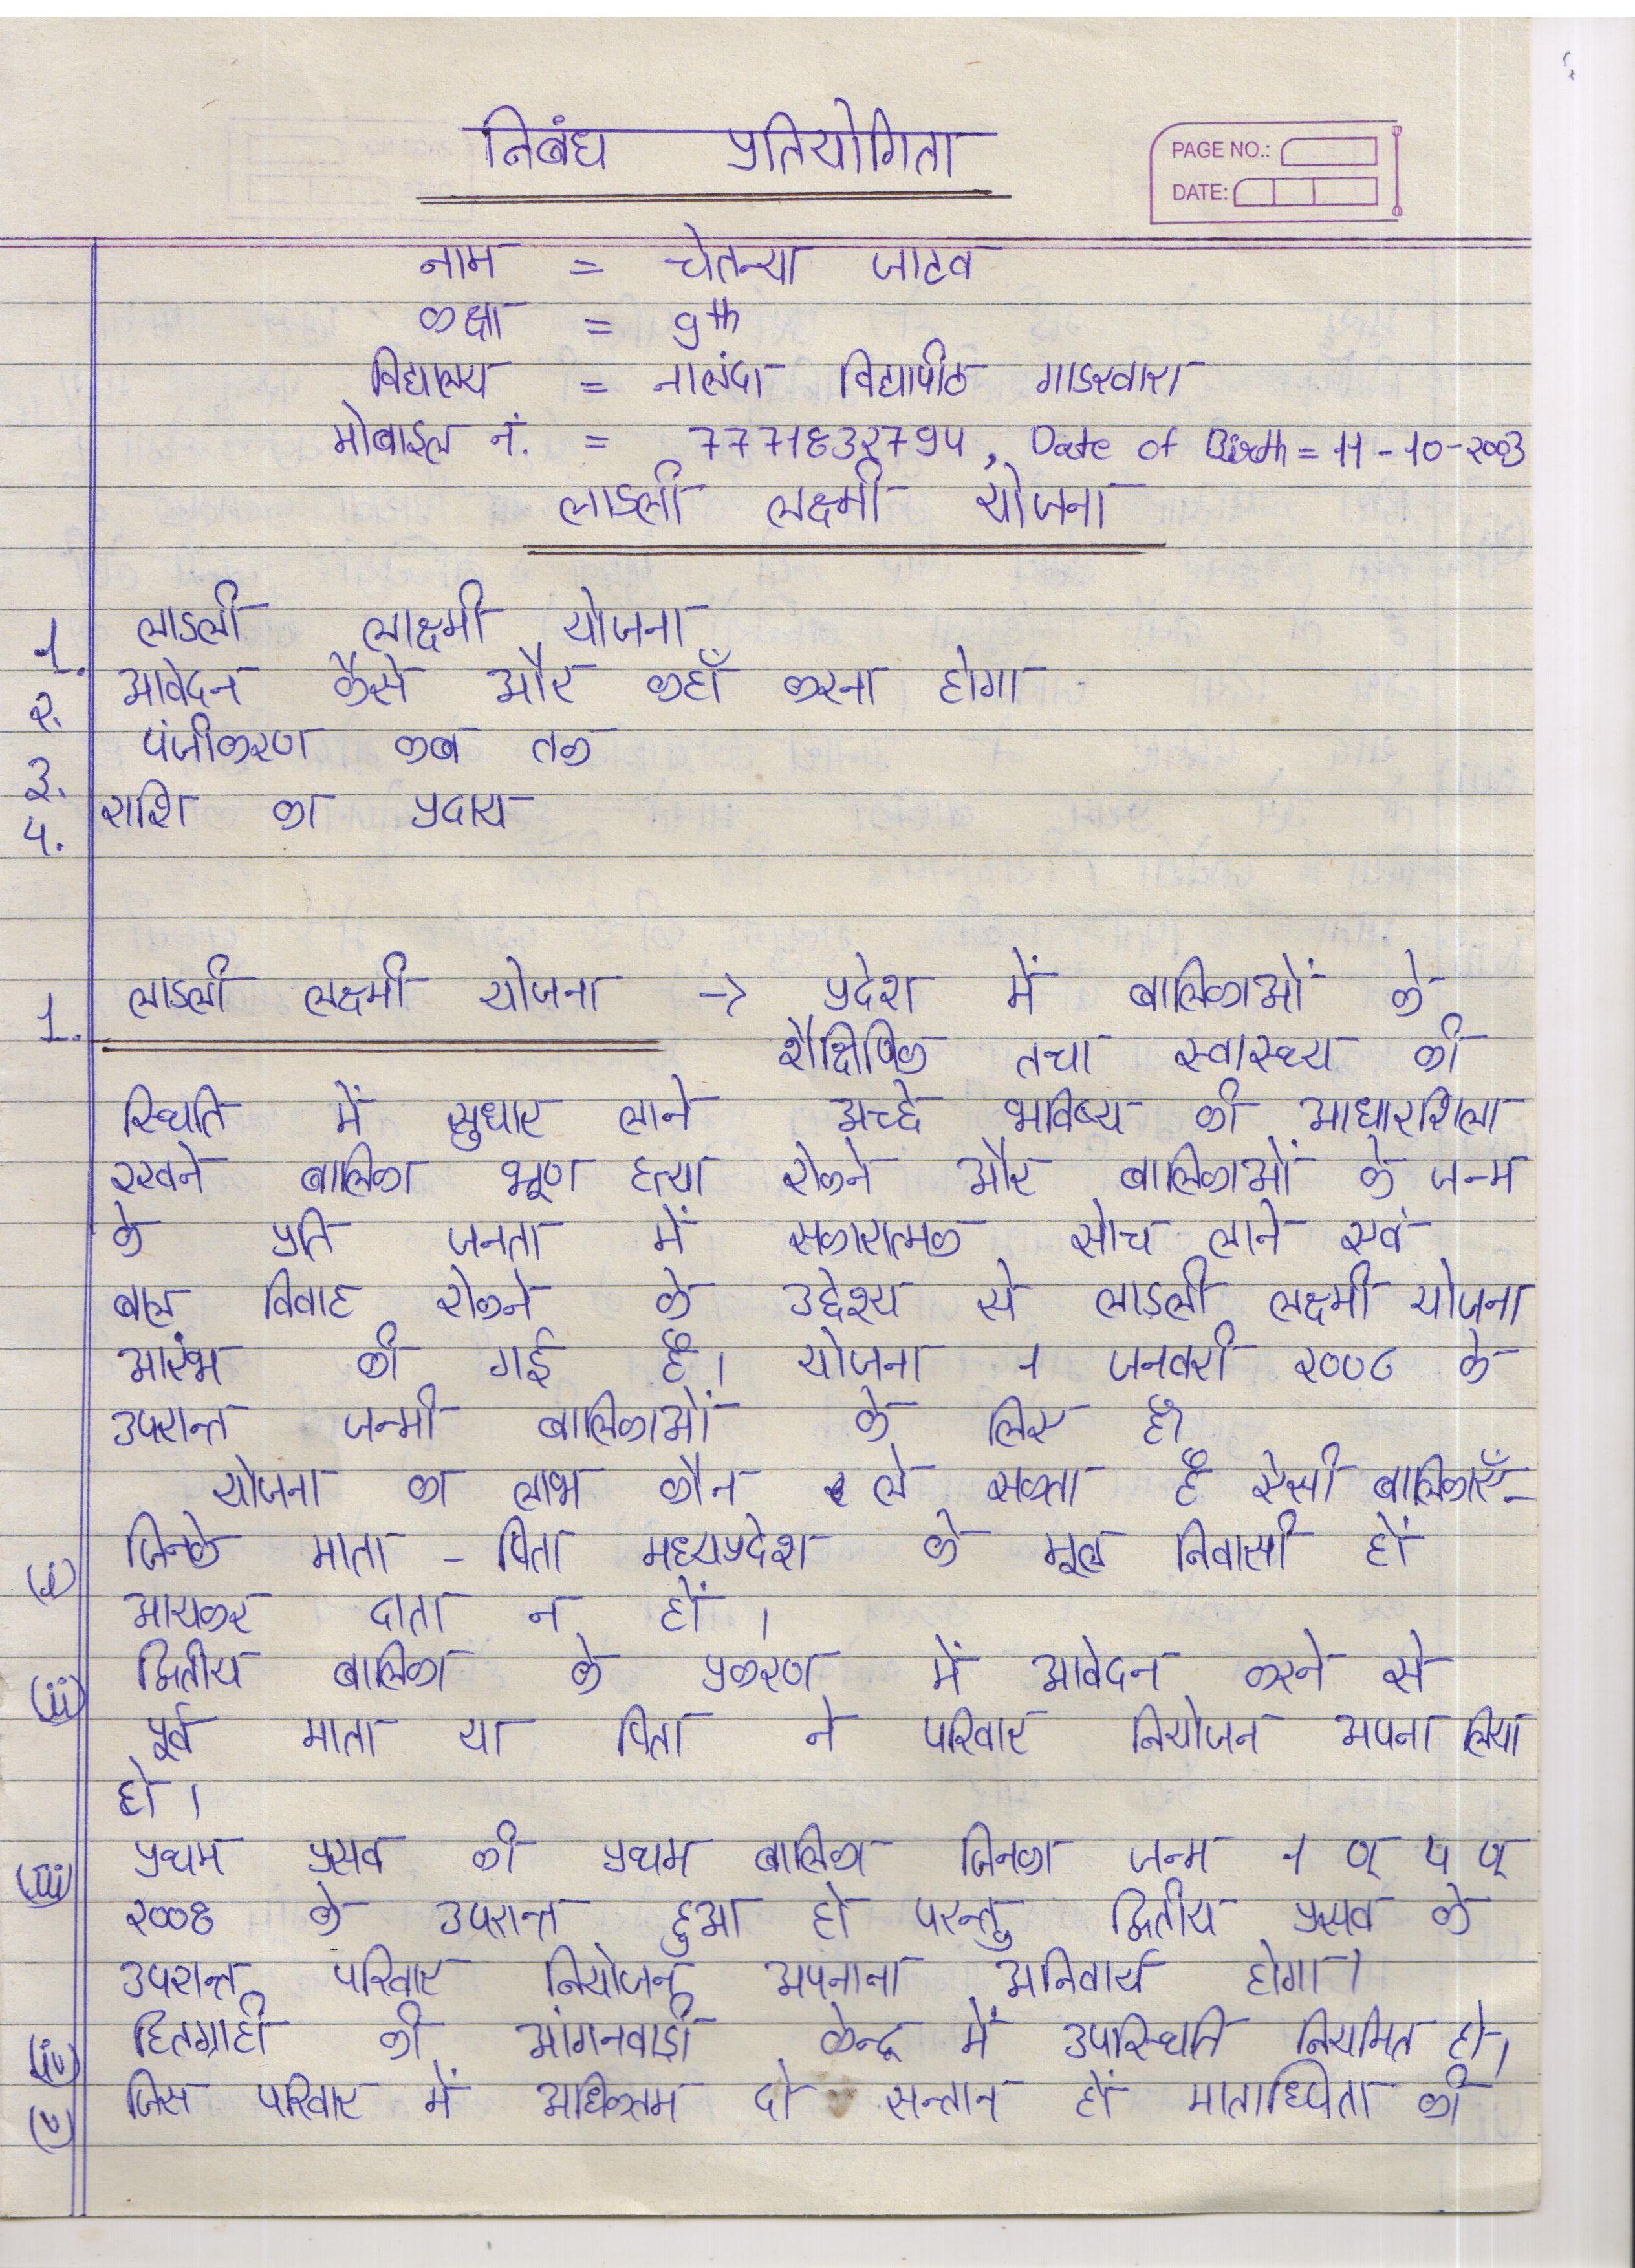 निबंध प्रतियोगिता
PAGE NO.:
DATE:
नाम = चेतन्या जाटव
कक्षा = 9th
विद्यालय = नालंदा विद्यापीठ गाडरवारा
मोबाइल नं. = , Date of Birth = 11-10-2003
लाडली लक्ष्मी योजना
1. लाडली लाक्ष्मी योजना
२. आवेदन कैसे और कहाँ करना होगा
३. पंजीकरण कब तक
४. राशि का प्रदाय
1. लाडली लक्ष्मी योजना → प्रदेश में बालिकाओं के
शैक्षिणिक तथा स्वास्थ्य की
स्थिति में सुधार लाने अच्छे भविष्य की आधारशिला
रखने बालिका भ्रूण हत्या रोकने और बालिकाओं के जन्म
के प्रति जनता में सकारात्मक सोच लाने एवं
बाल विवाह रोकने के उद्देश्य से लाडली लक्ष्मी योजना
आरंभ की गई है। योजना 1 जनवरी २००८ के
उपरान्त जन्मी बालिकाओं के लिए है।
योजना का लाभ कौन ले सकता है ऐसी बालिकाएँ-
(i) जिनके माता - पिता मध्यप्रदेश के मूल निवासी हों
आयकर दाता न हों ।
(ii) द्वितीय बालिका के प्रकरण में आवेदन करने से
पूर्व माता या पिता ने परिवार नियोजन अपना लिया
हो ।
(iii) प्रथम प्रसव की प्रथम बालिका जिनका जन्म 1
२००8 के उपरान्त हुआ हो परन्तु द्वितीय प्रसव के
उपरान्त परिवार नियोजन अपनाना अनिवार्य होगा।
(iv) हितग्राही की आंगनवाड़ी केन्द्र में उपस्थिति नियमित हो।
(v) जिस परिवार में अधिकतम दो सन्तान हों की